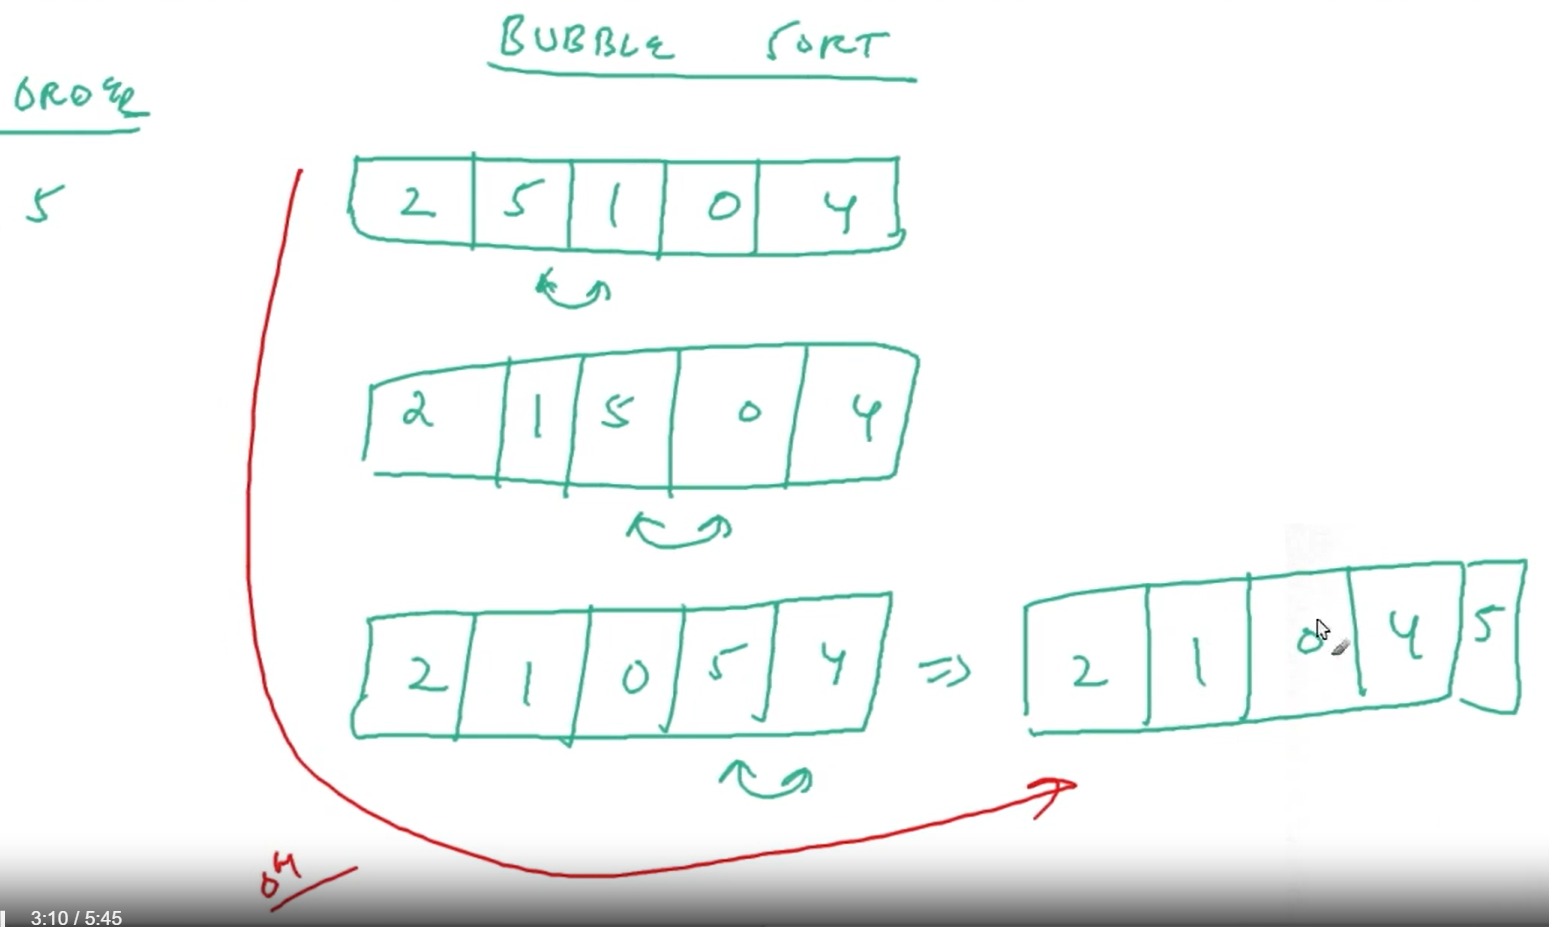 BUBBLE SORT
ORDER
5
2 5 1 0 4
2 1 5 0 4
2 1 0 5 4 => 2 1 0 4 5
3:10 / 5:45